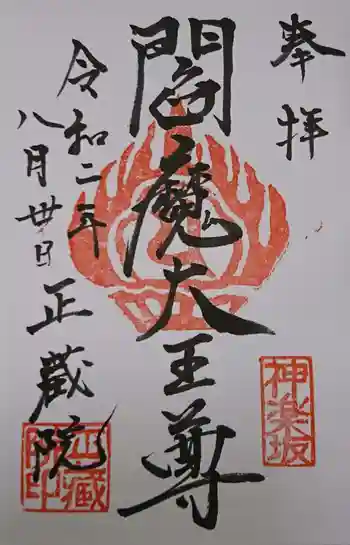 奉拝
閻魔大王尊
令和二年
八月卅日
正蔵院
神楽坂
正藏院印